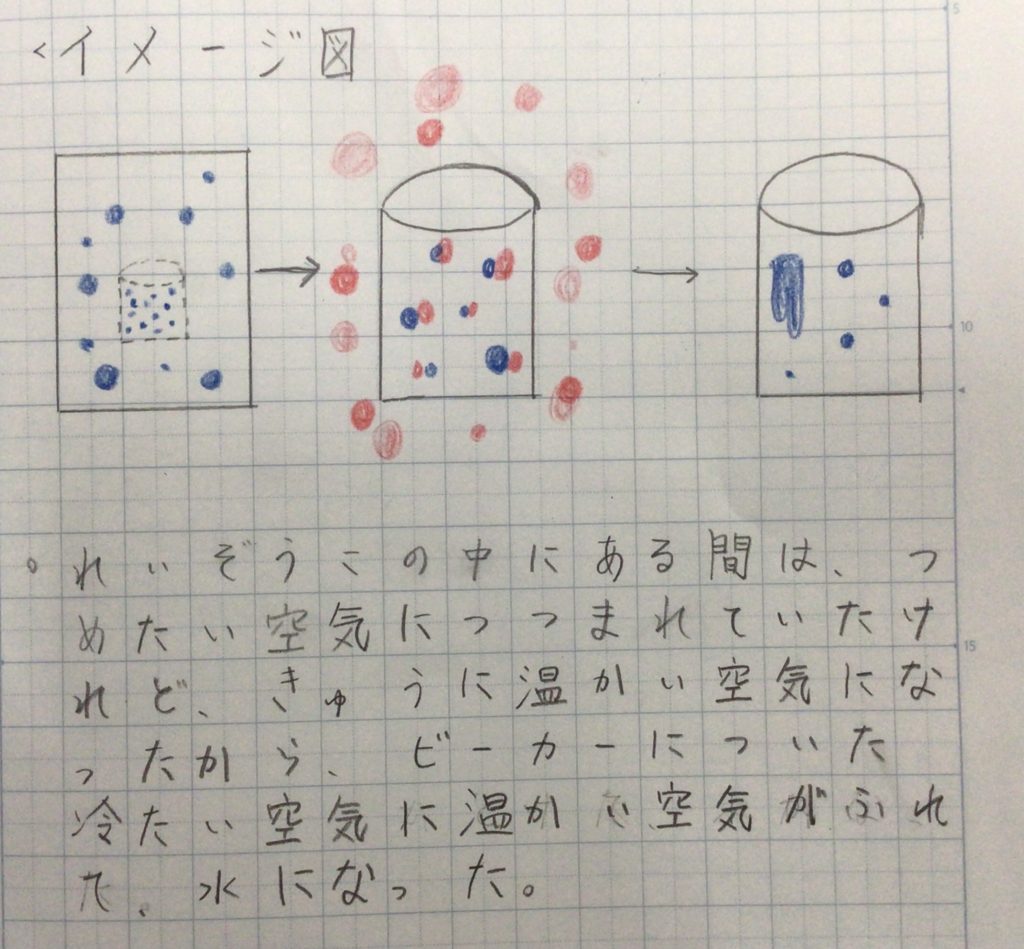 <イメージ図
5
10
15
。れいぞうこの中にある間は、つ
めたい空気につつまれていたけ
れど、きゅうに温かい空気にな
ったから、ビーカーについた
冷たい空気に温かい空気がふれ
た、水になった。